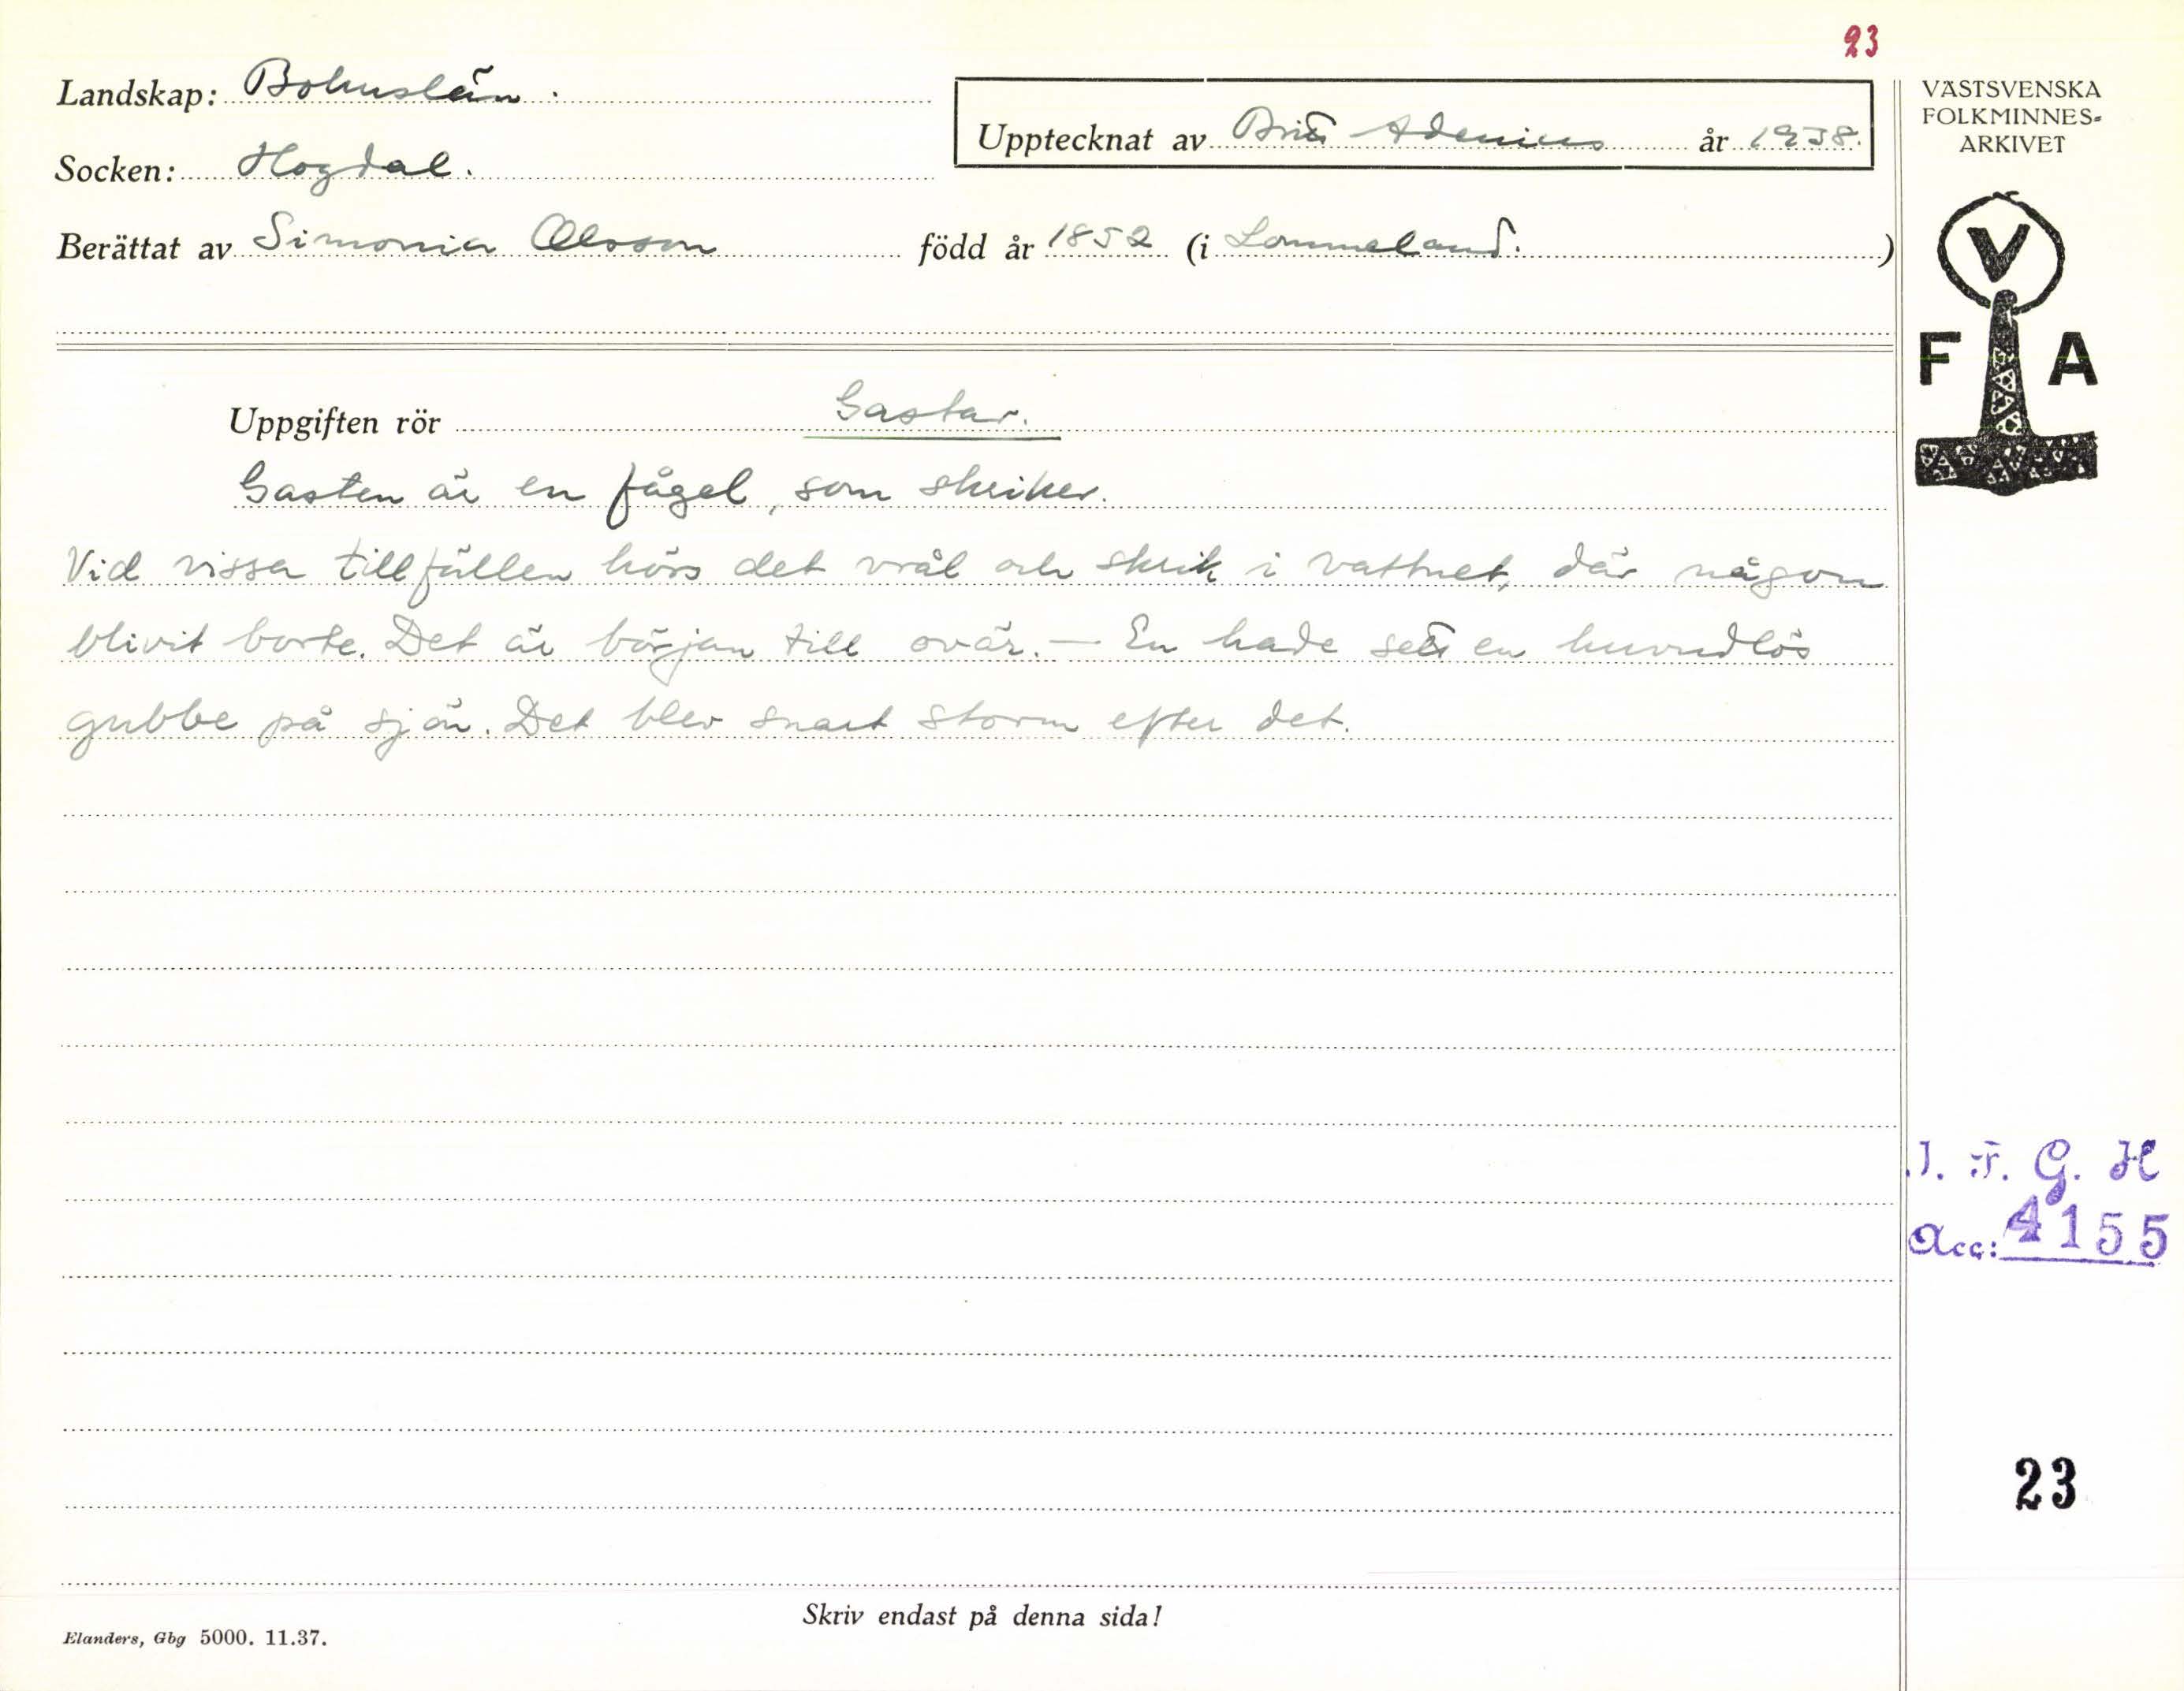 23
Landskap: Bohuslän.
Upptecknat av Britt Adenius år 1938.
Socken: Hogdal.
Berättat av Simonia Olsson född år 1852 (i Lommeland.)
VÄSTSVENSKA
FOLKMINNES-
ARKIVET
V
F A
Uppgiften rör Gastar.
Gasten är en fågel, som skriker.
Vid vissa tillfällen hörs det vrål och skrik i vattnet, där någon
blivit borte. Det är början till ovär. — En hade sett en huvudlös
gubbe på sjön. Det blev snart storm efter det.
I. F. G. H
Acc: 4155
23
Skriv endast på denna sida!
Elanders, Gbg 5000. 11.37.